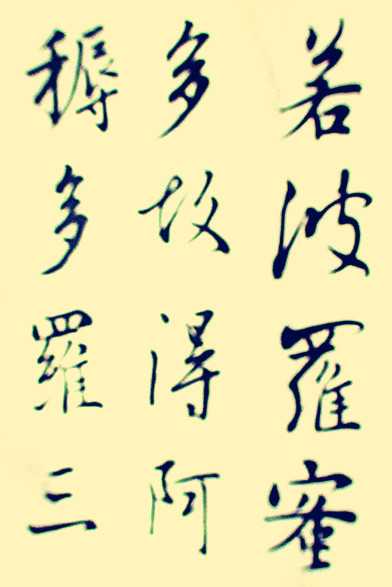 若波羅蜜
多故得阿
耨多羅三